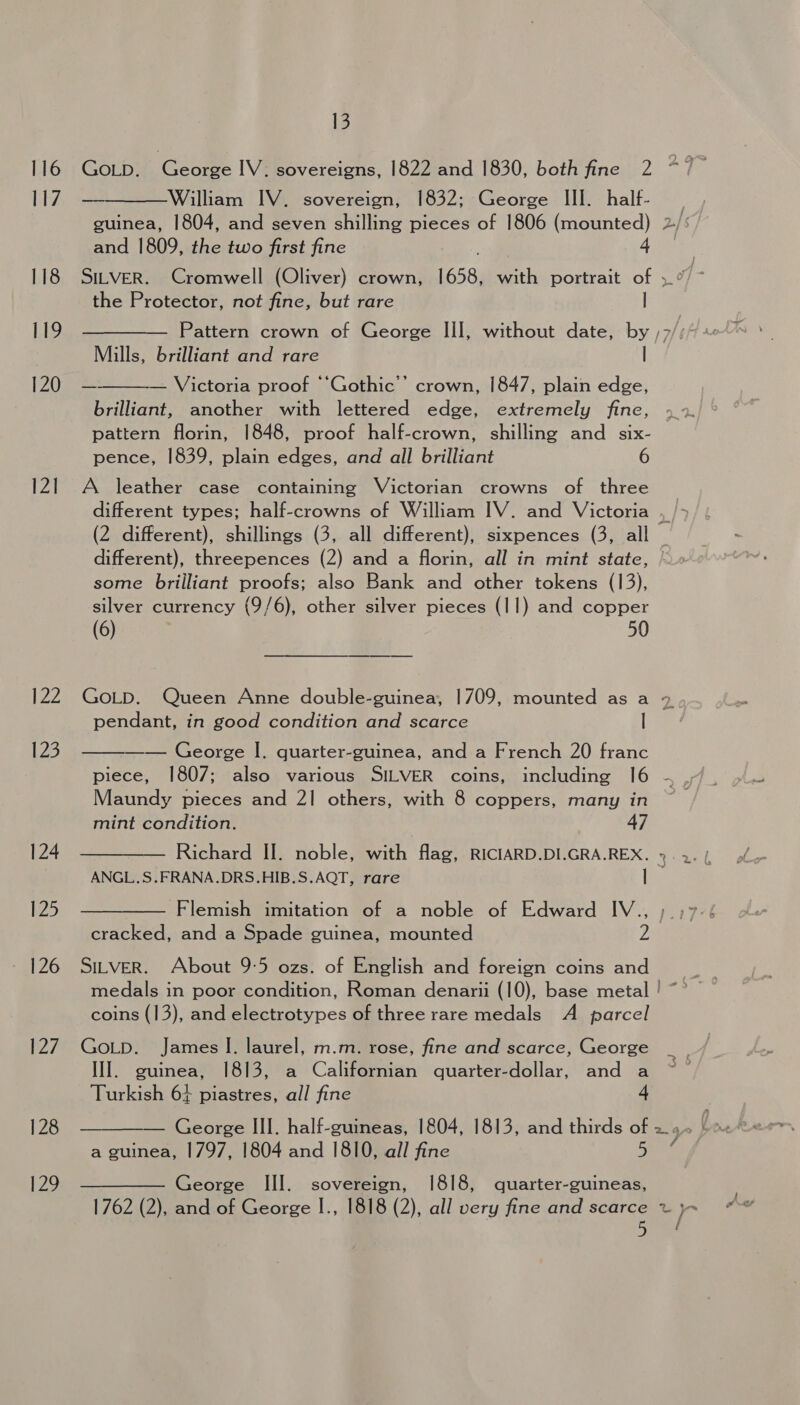 13
116 GOLD. George IV. sovereigns, 1822 and 1830, both fine 2
117 ———— William IV. sovereign, 1832; George III. half-
guinea, 1804, and seven shilling pieces of 1806 (mounted)
and 1809, the two first fine 4
118 SILVER. Cromwell (Oliver) crown, 1658, with portrait of
the Protector, not fine, but rare 1
119 ———— Pattern crown of George III, without date, by
Mills, brilliant and rare 1
120 ———— Victoria proof “Gothic” crown, 1847, plain edge,
brilliant, another with lettered edge, extremely fine,
pattern florin, 1848, proof half-crown, shilling and six-
pence, 1839, plain edges, and all brilliant 6
121 A leather case containing Victorian crowns of three
different types; half-crowns of William IV. and Victoria
(2 different), shillings (3, all different), sixpences (3, all
different), threepences (2) and a florin, all in mint state,
some brilliant proofs; also Bank and other tokens (13),
silver currency (9/6), other silver pieces (11) and copper
(6) 50
122 GOLD. Queen Anne double-guinea, 1709, mounted as a
pendant, in good condition and scarce 1
123 ———— George I. quarter-guinea, and a French 20 franc
piece, 1807; also various SILVER coins, including 16
Maundy pieces and 21 others, with 8 coppers, many in
mint condition. 47
124 ———— Richard II. noble, with flag, RICIARD.DI.GRA.REX.
ANGL.S.FRANA.DRS.HIB.S.AQT, rare 1
125 ———— Flemish imitation of a noble of Edward IV.,
cracked, and a Spade guinea, mounted 2
126 SILVER. About 9·5 ozs. of English and foreign coins and
medals in poor condition, Roman denarii (10), base metal
coins (13), and electrotypes of three rare medals A parcel
127 GOLD. James I. laurel, m.m. rose, fine and scarce, George
III. guinea, 1813, a Californian quarter-dollar, and a
Turkish 6¼ piastres, all fine 4
128 ———— George III. half-guineas, 1804, 1813, and thirds of
a guinea, 1797, 1804 and 1810, all fine 5
129 ———— George III. sovereign, 1818, quarter-guineas,
1762 (2), and of George I., 1818 (2), all very fine and scarce
5